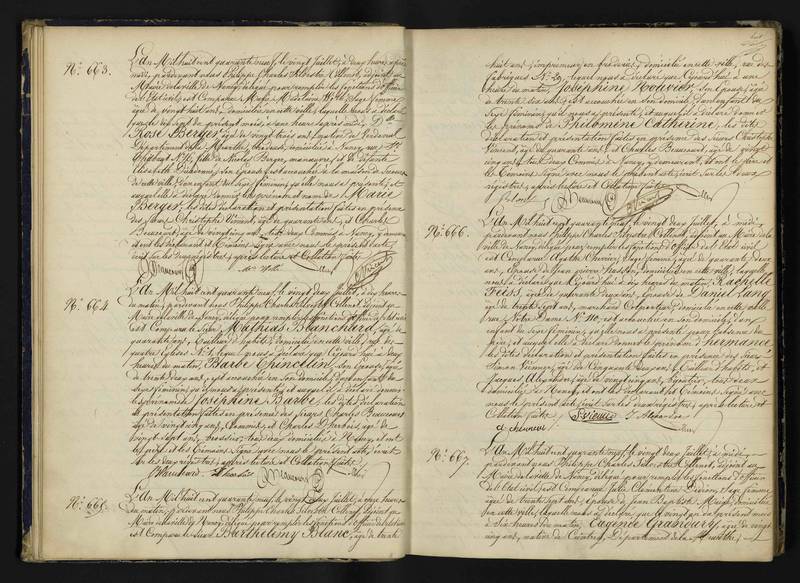 N.º 663.
L'An Mil huit cent quarante neuf, le vingt Juillet, à deux heures après
midi, pardevant nous Philippe Charles Silvestre Collenot, adjoint au
Maire de la ville de Nancy, délégué pour remplir les fonctions d'officier
de l'Etat civil, est Comparue Marie Madelaine
âgée de vingt huit ans, domiciliée en cette ville, laquelle nous a déclaré
que le dix sept du présent mois, à une heure après midi, D.lle
Rose Berger, âgée de vingt trois ans, native de
Département de la Meurthe, domiciliée à Nancy, rue St
N.º 11, fille de Nicolas Berger, manœuvre, et de défunte
Elisabeth est accouchée à la maison de Secours
de cette ville, d'un enfant du Sexe féminin, qu'elle nous a présenté, et
auquel elle a déclaré donner les prénom et nom de Marie
Berger, les dites déclaration et présentation faites en présence
des Sieurs Christophe Vincent, âgé de quarante ans, et Charles
Beaucourt, âgé de vingt cinq ans, tous deux Commis à Nancy, y demeurant
et ont les déclarant et témoins signé avec nous le présent acte,
écrit sur les deux registres, après lecture et Collation faite.
N.º 664.
L'An Mil huit cent quarante neuf, le vingt deux Juillet, à dix heures
du matin, pardevant nous Philippe Charles Silvestre Collenot, adjoint au
Maire de la ville de Nancy, délégué pour remplir les fonctions d'officier de l'Etat civil
est Comparu le Sieur Mathias Blanchard, âgé de
quarante ans, tailleur d'habits, domicilié en cette ville, rue des
quatre Eglises N.º 1, lequel nous a déclaré que Cejourd'hui à deux
heures du matin, Barbe Thincelin, Son Epouse, âgée
de trente deux ans, est accouchée en Son domicile, d'un enfant du
Sexe féminin, qu'il nous a présenté, et auquel il a déclaré donner
les prénoms de Joséphine Barbe, les dites déclaration
et présentation faites en présence des Sieurs Charles Beaucourt
âgé de vingt cinq ans, Commis, et Charles
vingt sept ans, brossier, tous deux domiciliés à Nancy, et ont
le père et les témoins signé avec nous le présent acte, écrit
sur les deux registres, après lecture et Collation faite.
Blanchard
N.º 665.
L'An Mil huit cent quarante neuf, le vingt deux Juillet, à onze heures
du matin, pardevant nous Philippe Charles Silvestre Collenot, adjoint au
Maire de la ville de Nancy, délégué pour remplir les fonctions d'officier de l'Etat civil
est Comparu le Sieur Barthelemy Blanc, âgé de trente
huit ans, imprimeur en domicilié en cette ville, rue des
fabriques N.º 29, lequel nous a déclaré que Cejourd'hui à une
heure du matin, Joséphine Bouvier, Son Epouse, âgée
de trente six ans, est accouchée en Son domicile, d'un enfant du
Sexe féminin, qu'il nous a présenté, et auquel il a déclaré donner
les prénoms de Philomène Catherine, les dites
déclaration et présentation faites en présence des Sieurs Christophe
Vincent, âgé de quarante ans, et Charles Beaucourt, âgé de vingt
cinq ans, tous deux Commis à Nancy, y demeurant, et ont le père et
les témoins signé avec nous le présent acte, écrit sur les deux
registres, après lecture et Collation faite.
N.º 666.
L'An Mil huit cent quarante neuf, le vingt deux Juillet, à midi,
pardevant nous Philippe Charles Silvestre Collenot, adjoint au Maire de la
ville de Nancy, délégué pour remplir les fonctions d'officier de l'Etat civil
est Comparue Agathe Sage femme, âgée de quarante deux
ans, Epouse de Jean pierre domiciliée en cette ville, laquelle
nous a déclaré que Cejourd'hui à dix heures du matin, Rachelle
Feiss, âgée de quarante deux ans, Epouse de Daniel Lang
âgé de trente sept ans, marchand Colporteur, domicilié en cette ville
rue Notre Dame N.º 110, est accouchée en Son domicile, d'un
enfant du Sexe féminin, qu'elle nous a présenté pour l'absence du
père, et auquel elle a déclaré donner le prénom d'hermance,
les dites déclaration et présentation faites en présence des Sieurs
Simon Vienne, âgé de Cinquante deux ans, tailleur d'habits, et
Jacques Alexandre, âgé de vingt cinq ans, tous deux
domiciliés à Nancy, et ont les déclarant et témoins signé avec
nous le présent acte, écrit sur les deux registres, après lecture et
Collation faite.
S. Vienne
N.º 667.
L'An Mil huit cent quarante neuf, le vingt deux Juillet, à midi,
pardevant nous Philippe Charles Silvestre Collenot, adjoint au
Maire de la ville de Nancy, délégué pour remplir les fonctions d'officier
de l'Etat civil, est Comparue Julie Clémentine Sage femme
âgée de trente sept ans, Epouse de Jean Joseph domiciliée
en cette ville, laquelle nous a déclaré que le vingt un du présent mois
à Six heures du matin, Eugenie Granoury, âgée de vingt
cinq ans, native de Département de la Meurthe,